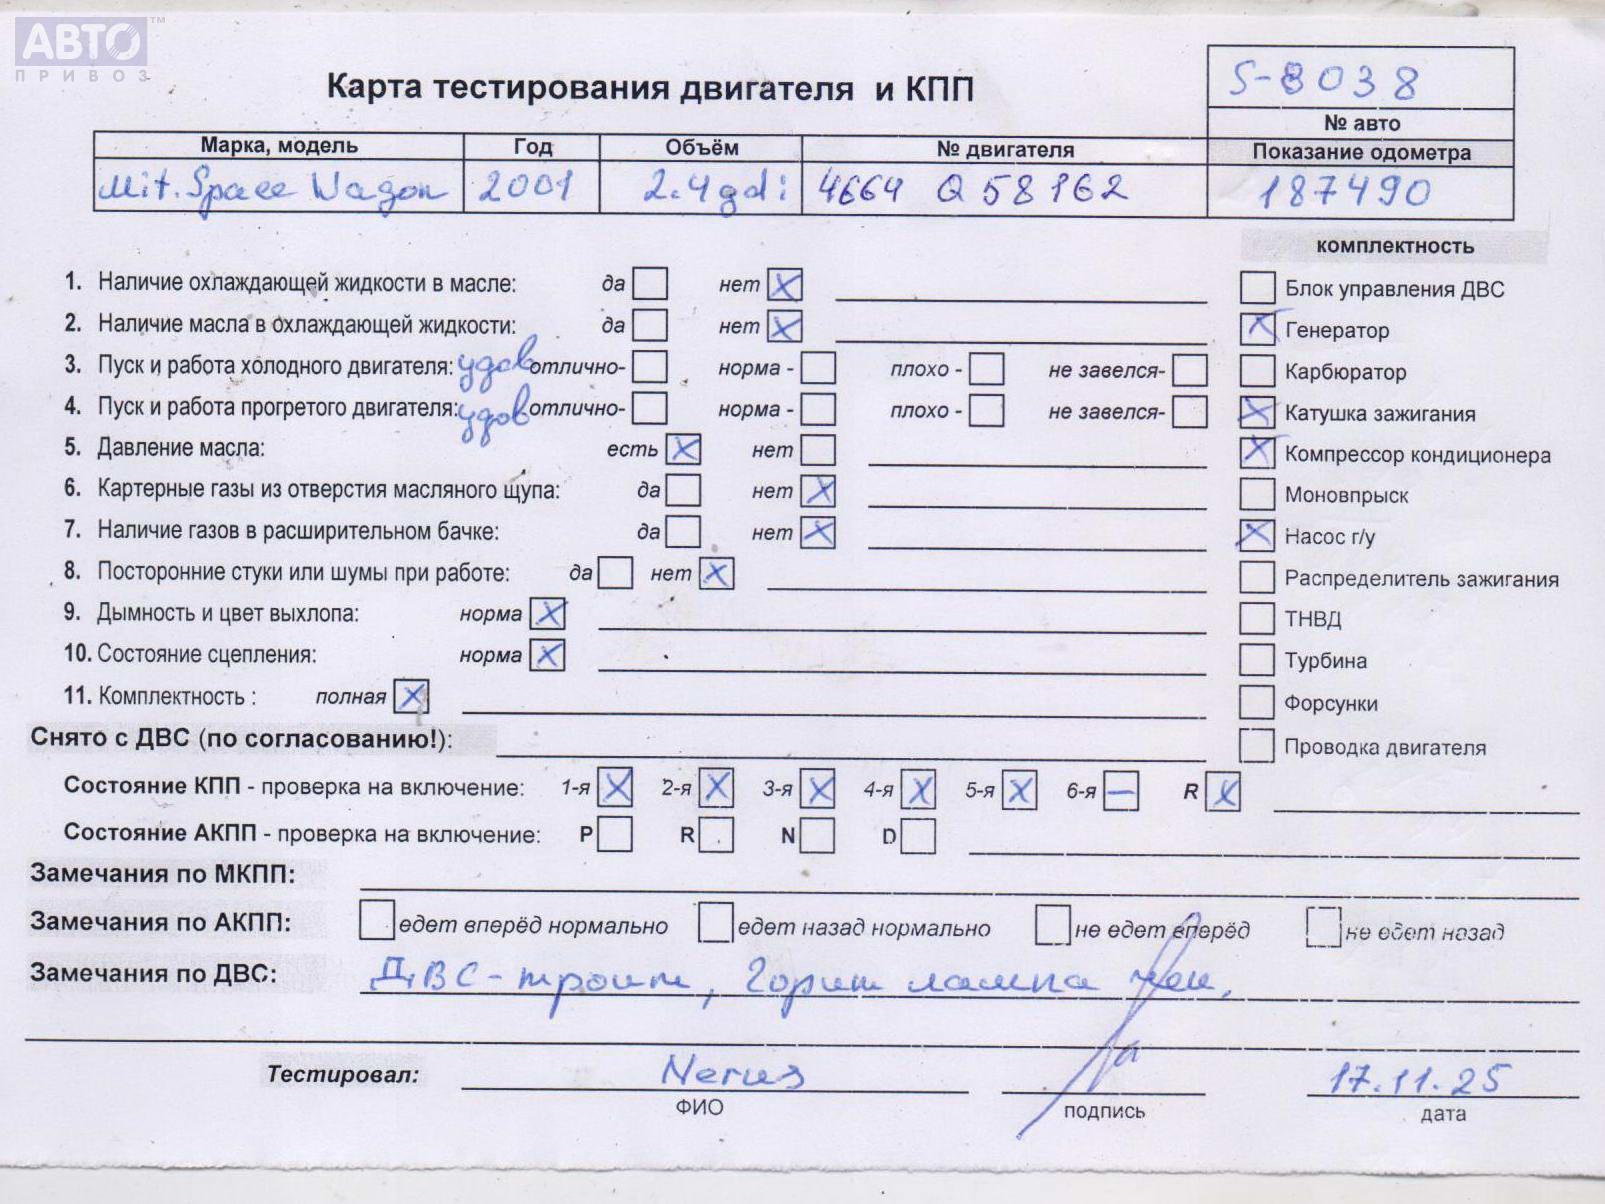 АВТО™
ПРИВОЗ
Карта тестирования двигателя и КПП
S-8038
№ авто
Марка, модель Год Объём № двигателя Показание одометра
Mit. Space Wagon 2001 2.4 gdi 4G64 Q58162 187490
комплектность
1. Наличие охлаждающей жидкости в масле: да нет X
Блок управления ДВС
2. Наличие масла в охлаждающей жидкости: да нет X
X Генератор
3. Пуск и работа холодного двигателя: удов отлично- норма - плохо - не завелся-
Карбюратор
4. Пуск и работа прогретого двигателя: удов отлично- норма - плохо - не завелся-
X Катушка зажигания
5. Давление масла: есть X нет
X Компрессор кондиционера
6. Картерные газы из отверстия масляного щупа: да нет X
Моновпрыск
7. Наличие газов в расширительном бачке: да нет X
X Насос г/у
8. Посторонние стуки или шумы при работе: да нет X
Распределитель зажигания
9. Дымность и цвет выхлопа: норма X
ТНВД
10. Состояние сцепления: норма X
Турбина
11. Комплектность : полная X
Форсунки
Снято с ДВС (по согласованию!):
Проводка двигателя
Состояние КПП - проверка на включение: 1-я X 2-я X 3-я X 4-я X 5-я X 6-я — R X
Состояние АКПП - проверка на включение: P R N D
Замечания по МКПП:
Замечания по АКПП: едет вперёд нормально едет назад нормально не едет вперёд не едет назад
Замечания по ДВС: ДВС - троит, Горит лампа чек.
Тестировал: Nerus 17.11.25
ФИО подпись дата